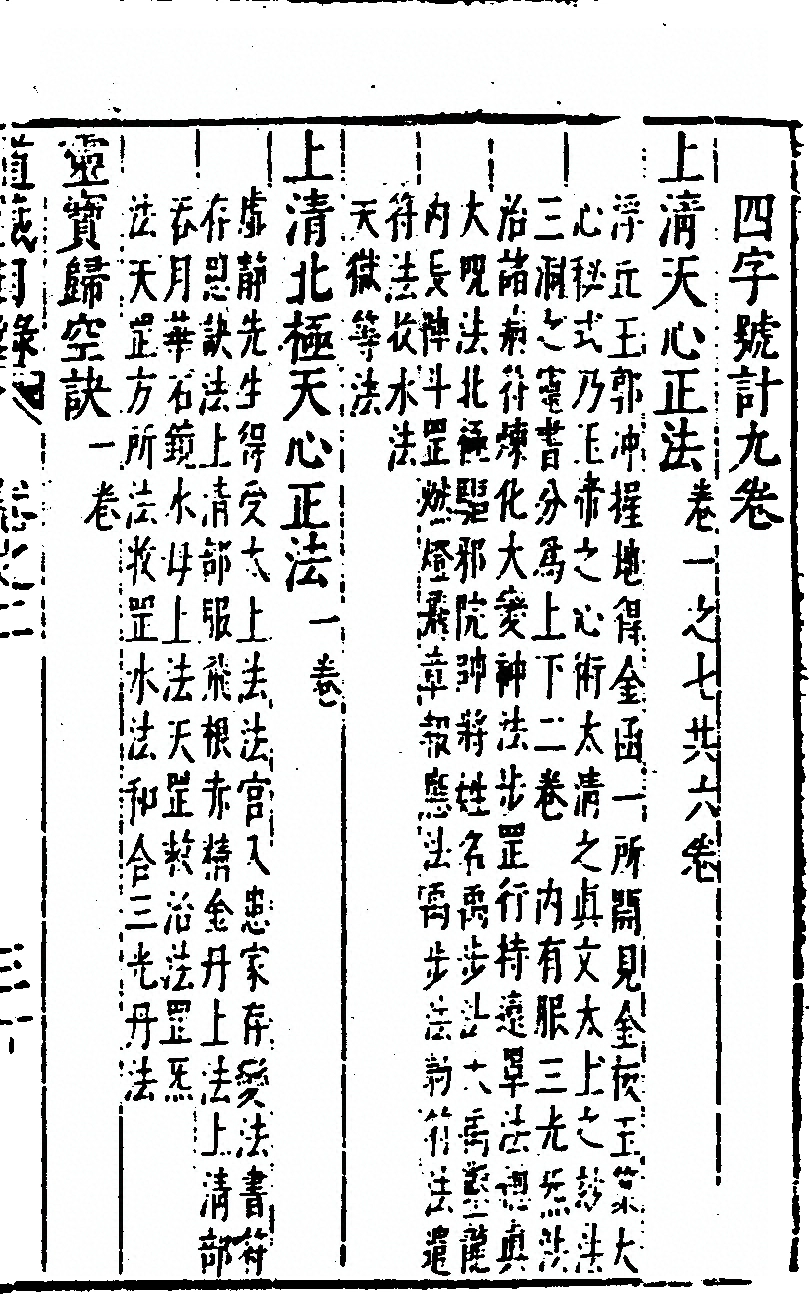 四字號計九卷
上清天心正法 卷一之七共六卷
浮丘王郭冲握地得金函一所開見金板玉篆大
心秘式乃玉帝之心術太清之眞文太上之妙法
三洞之靈書分爲上下二卷 內有服三光炁法
治諸病符煉化大變神法步罡行持遠罩法混眞
大呪法北極驅邪院帥將姓名禹步法大禹
內長陣斗罡燃燈奏章報應法禹步法 符法遣
符法收水法
天獄等法
上清北極天心正法 一卷
虛靜先生得受太上法法官入患家存變法書符
存思訣法上清部服飛根赤精金丹上法上清部
吞月華石鏡水母上法天罡救治法罡炁
法天罡方所法收罡水法和合三光丹法
靈寶歸空訣 一卷
道藏目錄 卷之二